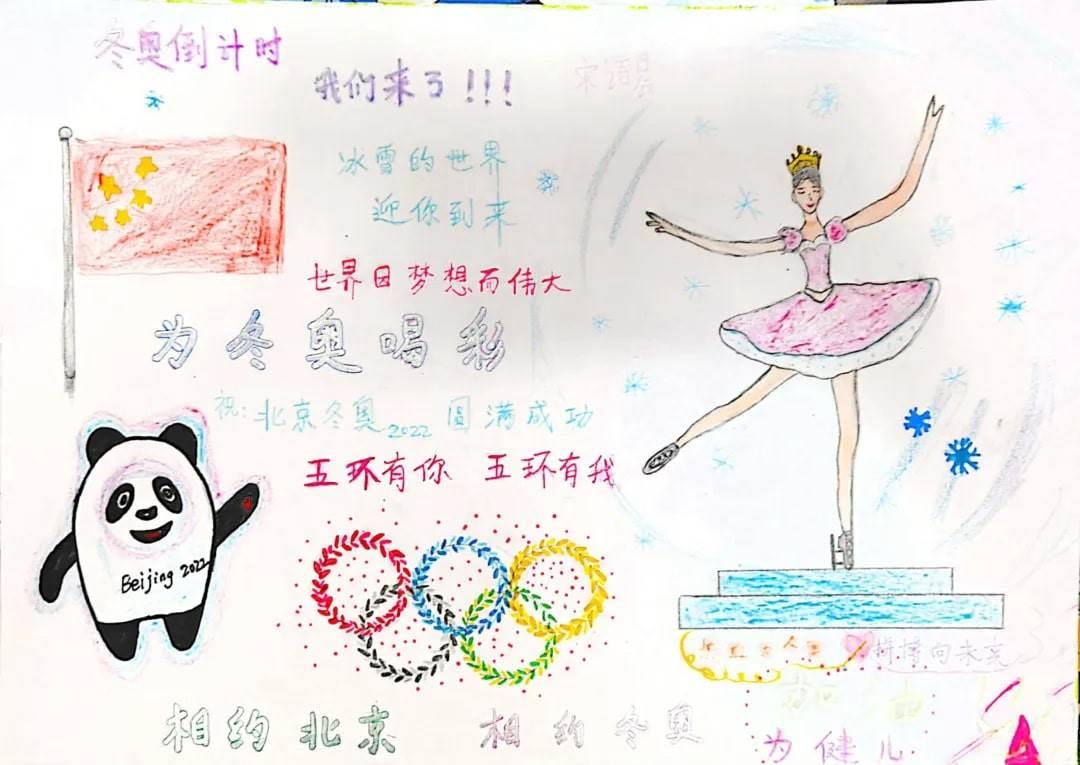 冬奥倒计时
我们来了!!!
冰雪的世界
迎你到来
世界因梦想而伟大
为冬奥喝彩
祝:北京冬奥2022 圆满成功
五环有你 五环有我
Beijing 2022
拼搏向未来
相约北京 相约冬奥
为健儿